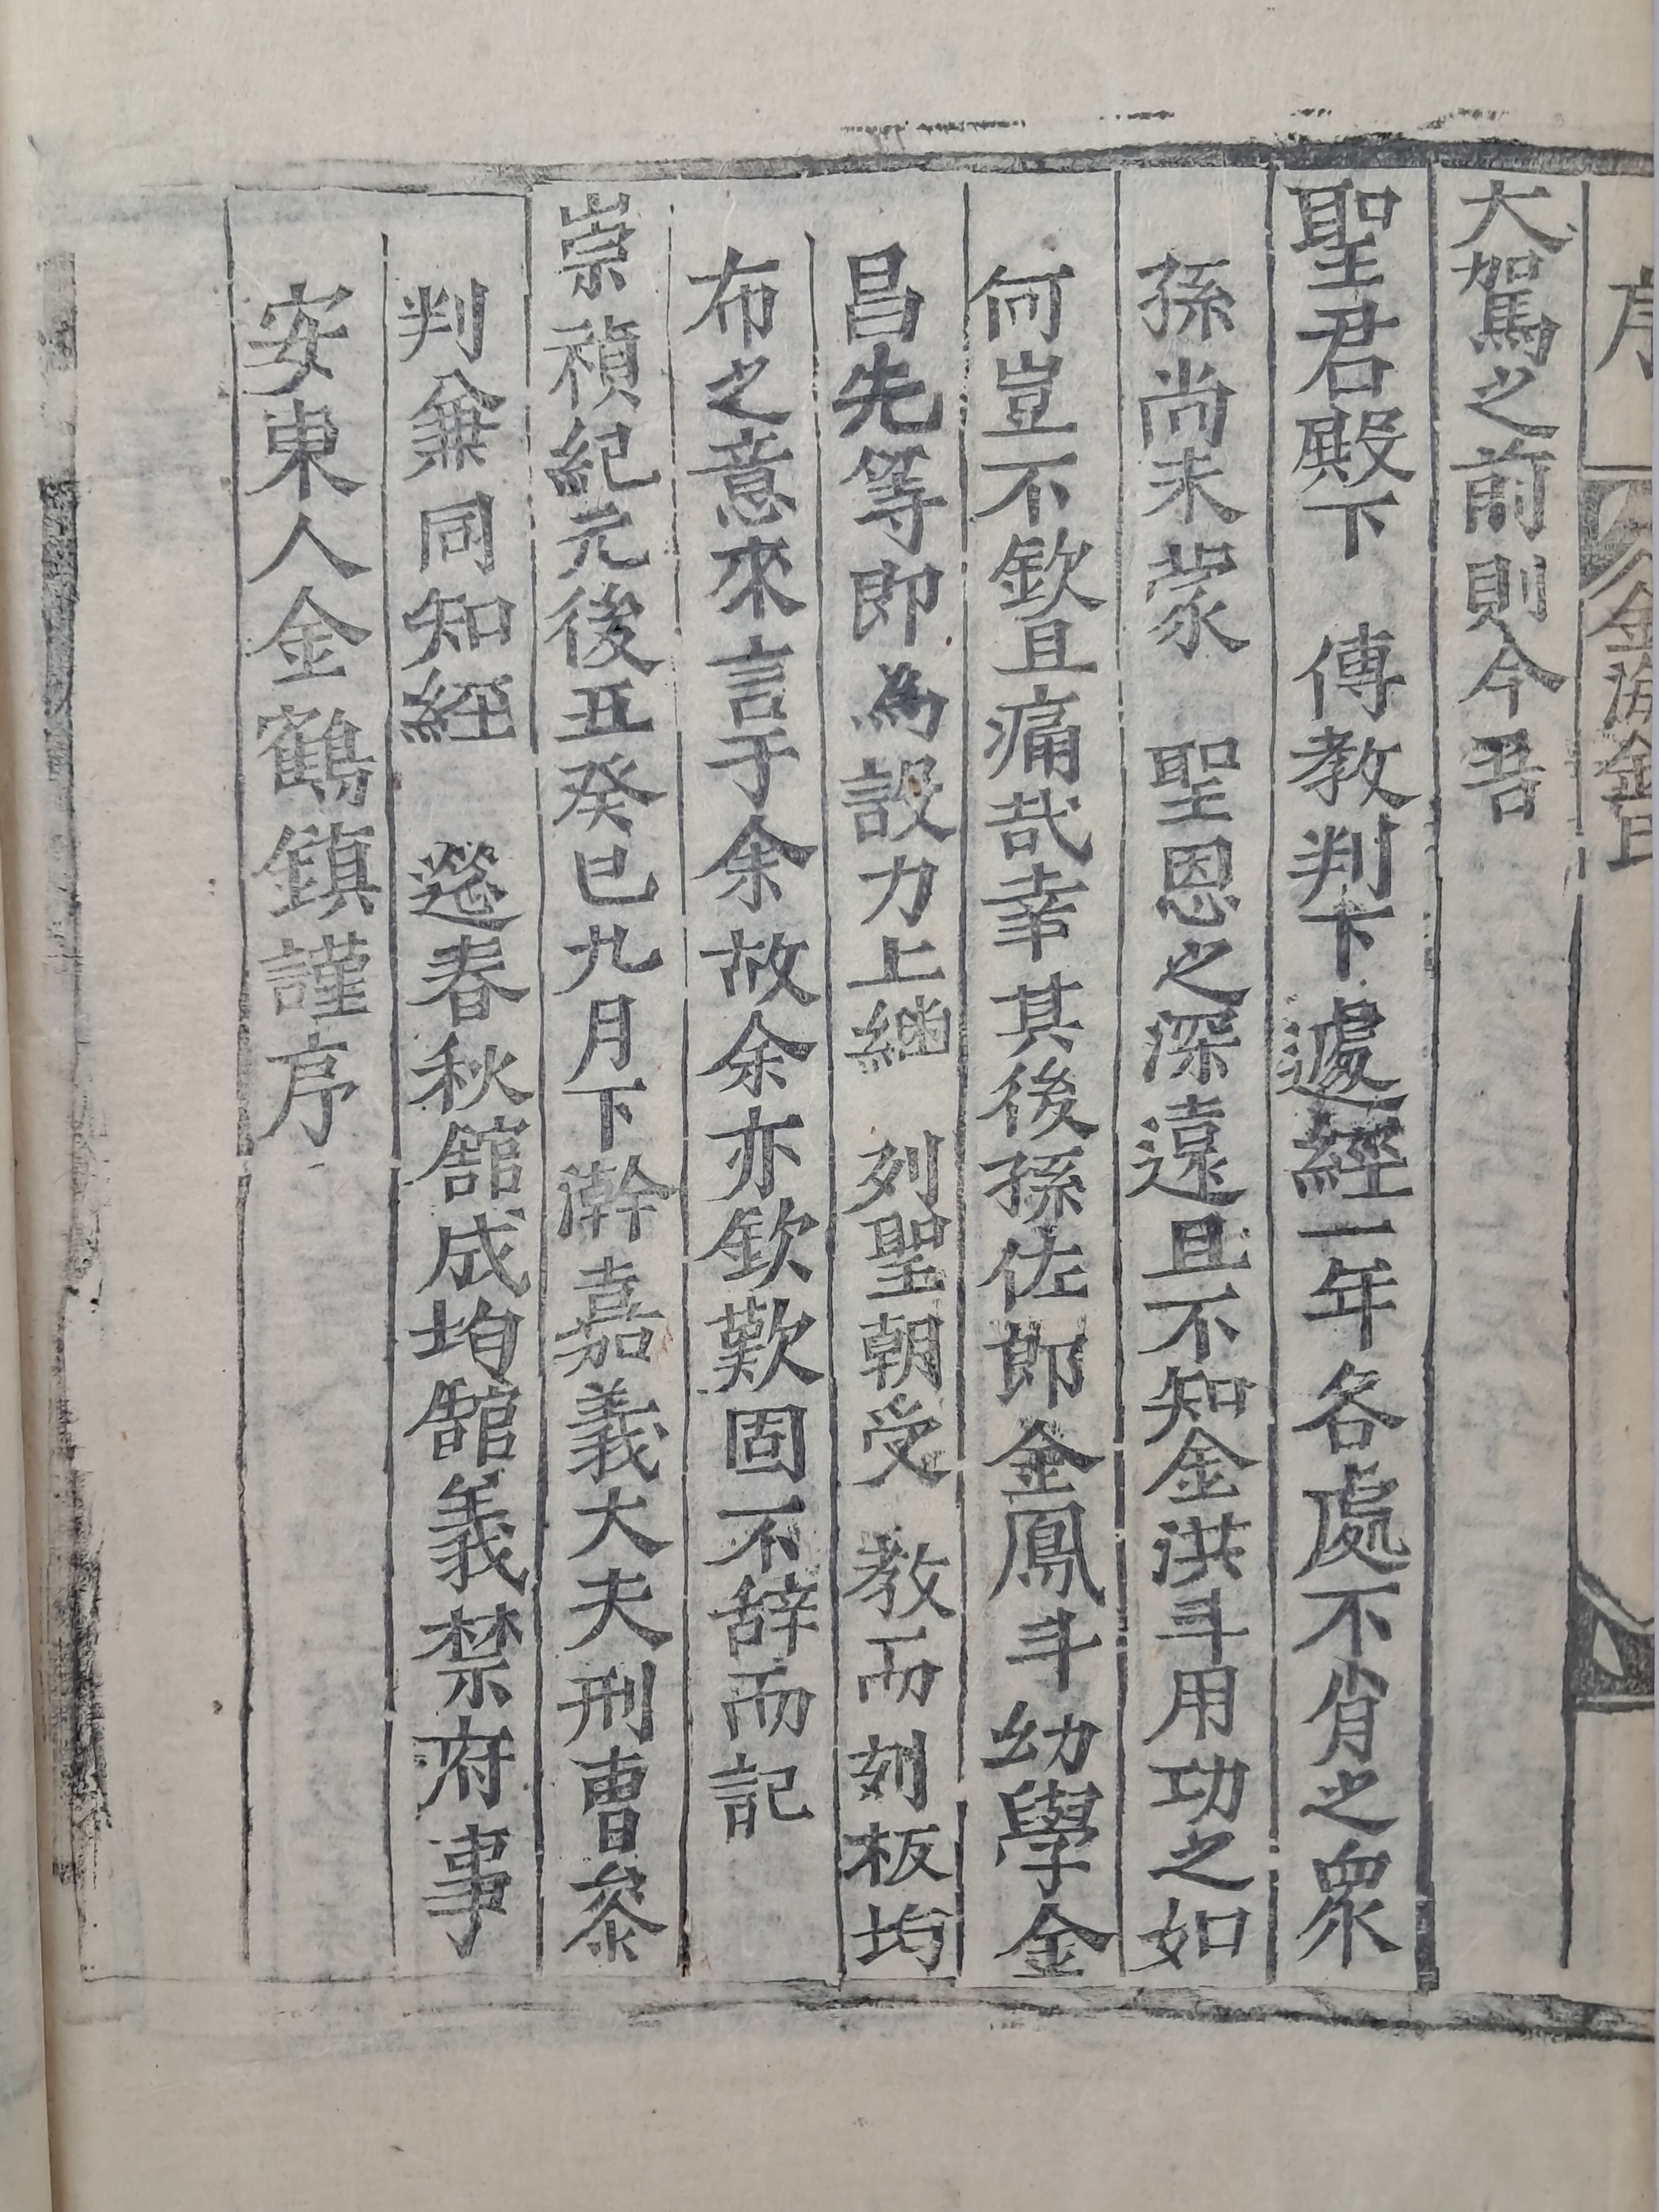 序 金海金氏
大駕之前則今吾
聖君殿下 傳教判下遽經一年各處不肖之衆
孫尚未蒙 聖恩之深遠且不知金洪斗用功之如
何豈不欽且痛哉幸其後孫佐郎金鳳斗幼學金
昌先等即為設力上継 列聖朝受 教而刻板均
布之意來言于余故余亦欽歎固不辞而記
崇禎紀元後五癸巳九月下澣嘉義大夫刑曹叅
判兼同知經 筵春秋舘成均舘義禁府事
安東人金鶴鎮謹序